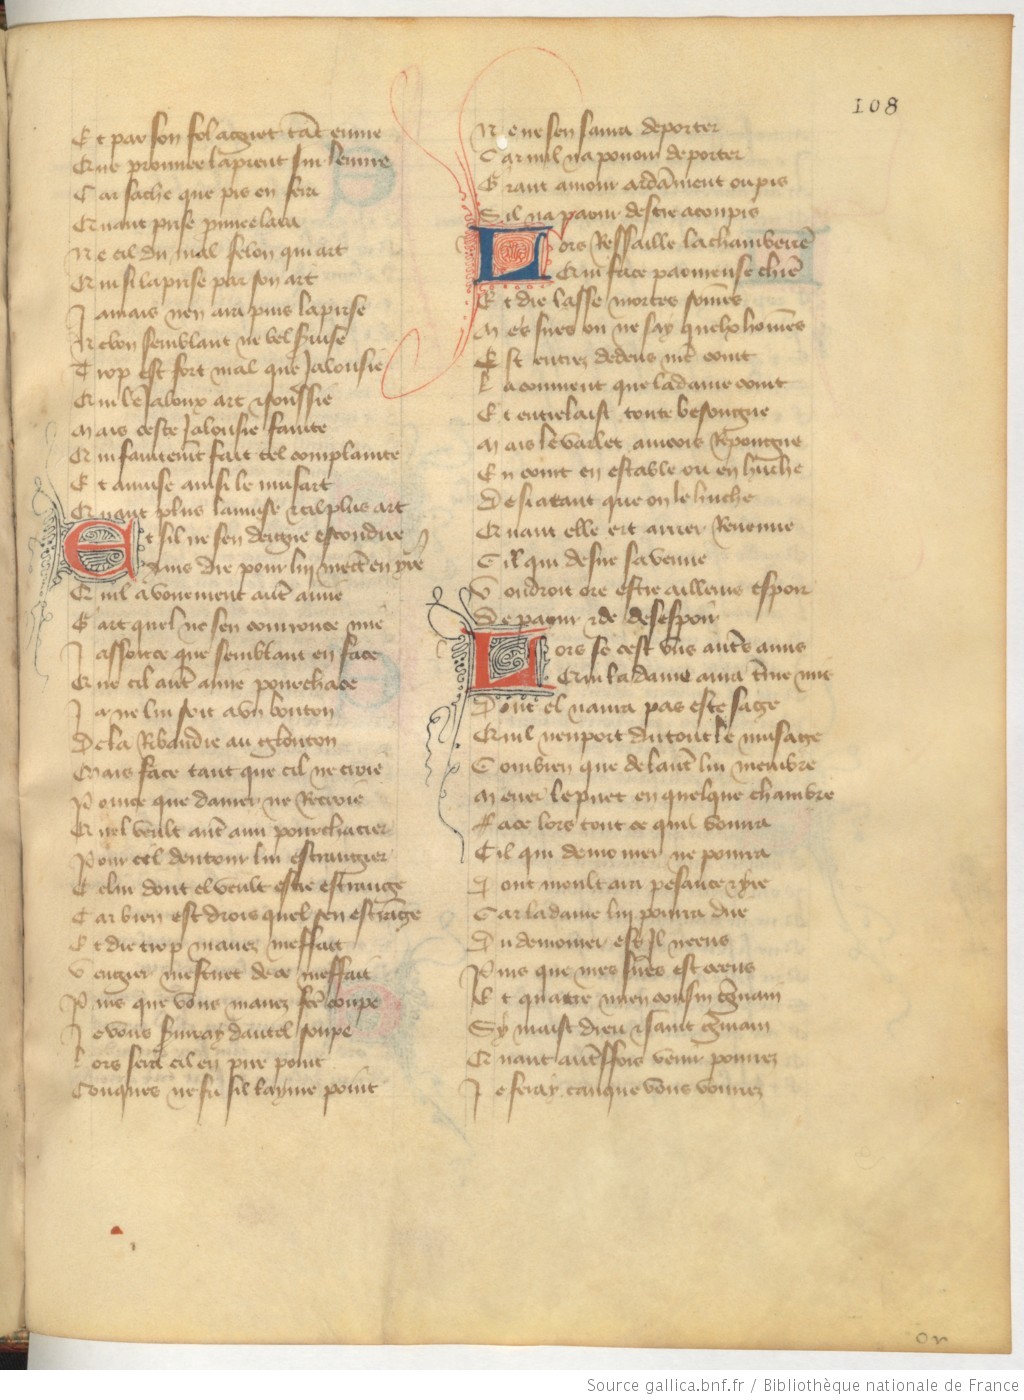 108
Et par son fol aguet tant enuie
Que prouuee la prent sur lenuie
Car sache que pis en fera
Quant prise prouuee laura
Ne cil du mal felon qui art
Qui si la prise par son art
Jamais nen aura puis la prise
Ne bon semblant ne bel seruise
Trop est fort mal que Jalousie
Qui le Jaloux art et soussie
Mais ceste Jalousie fainte
Qui faintement fait tel complainte
Et amuse ainsi le musart
Quant plus lamuse et cil plus art
Et sil ne sen deigne escondire
Ains die pour lui mectre en yre
Quil a vouement autre amie
Gart quel ne sen courrouce mie
Ja soit ce que semblant en face
Que cil autre amie pourchace
Ja ne lui soit a vn bouton
De la Ribaudie au glouton
Mais face tant que cil ne croie
Pource que damer ne Recroie
Quel veult autre ami pourchacier
Pour cel dentour lui estrangier
Celui dont el veult estre estrange
Car bien est drois quel sen estrange
Et die trop mauez meffait
Vengier mestuet de ce meffait
Puis que vous mauez fait coupe
Je vous seruiray dautel soupe
Lors sera cil en pire point
Conques ne fu sil layme point
Ne ne sen saura deporter
Car nul na pouoir de porter
Grant amour ardamment ou pis
Sil na paour destre acoupis
Lors Ressaille la chamberiere
Qui face paoureuse chiere
Et die lasse mortes sommes
Mes sires ou ne say quelx hommes
Est entrez dedens nostre court
La conuient que la dame court
Et entrelaist toute besongne
Mais le varlet aincois Repongne
En court en estable ou en huche
Desi atant que on le huche
Quant elle ert arrier Reuenue
Cil qui desire sa venue
Voudroit ore estre ailleurs espoir
De paour et de desespoir
Lors se cest vns autres amis
Qui la dame aura terme mis
Dont el naura pas este sage
Quil nenport du tout le musage
Combien que de lautre lui membre
Mener le puet en quelque chambre
Face lors tout ce quil vourra
Cil qui demourer ne pourra
Dont moult aura pesance et yre
Car la dame lui pourra dire
Du demourer est Il neens
Puis que mes sires est ceens
Et quatre mien cousin germain
Sy maist dieu et saint germain
Quant autreffois venir pourrez
Je feray canque vous vourrez
Or
Source gallica.bnf.fr / Bibliothèque nationale de France